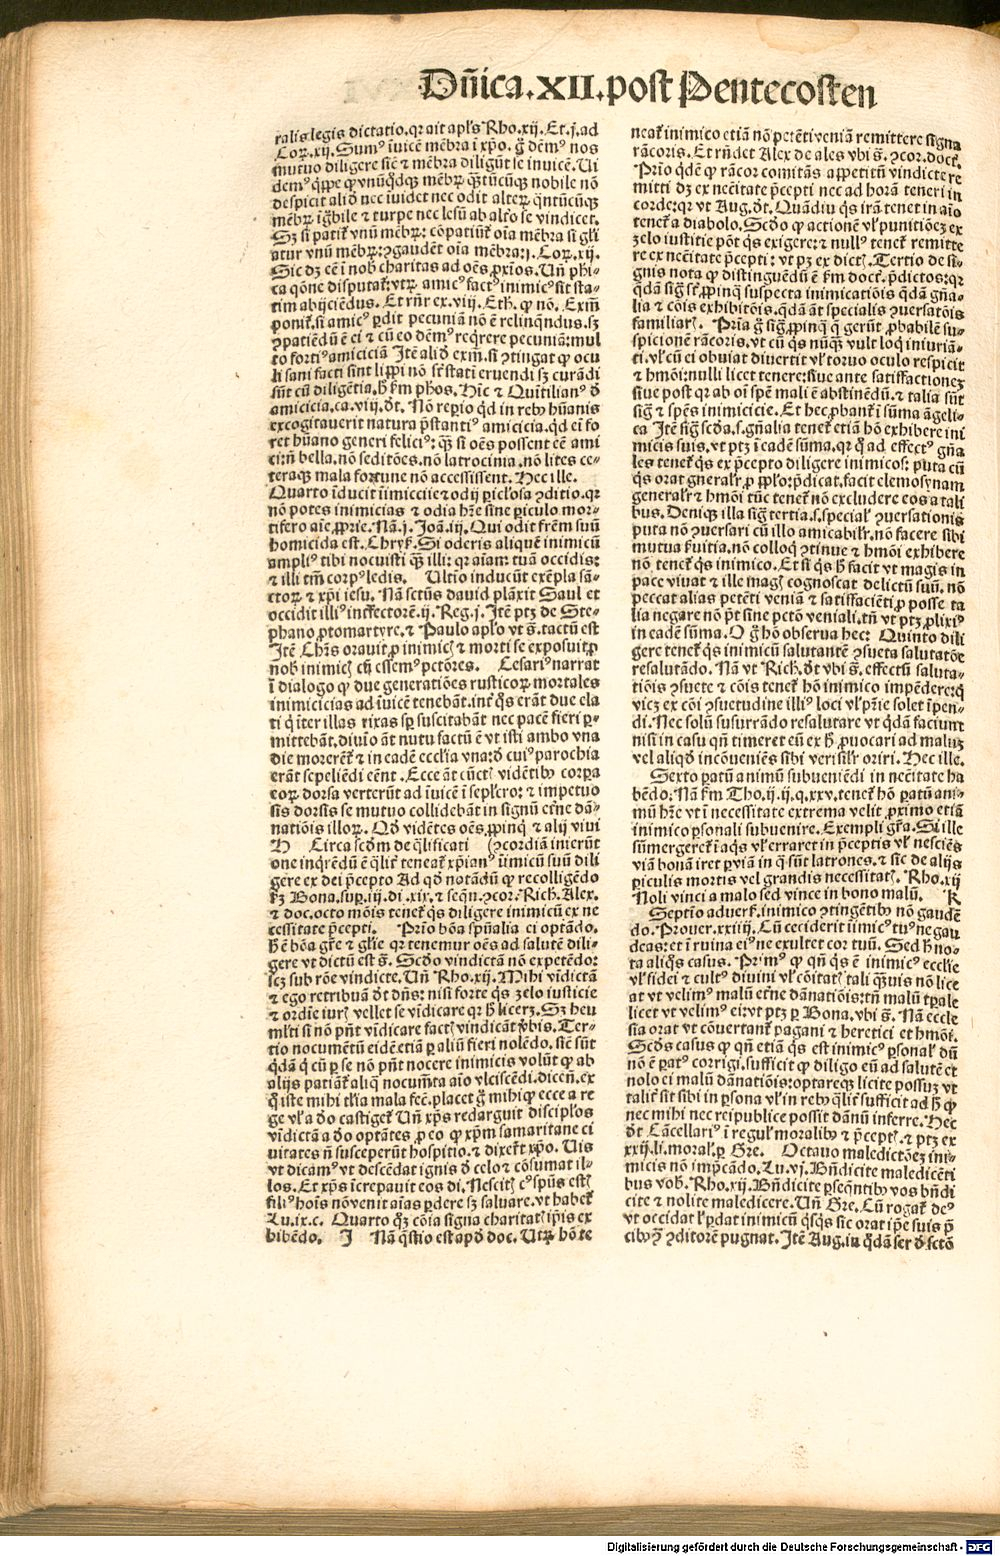 Dn̄ica.XII.post Pentecosten
ralis legis dictatio.qr ait apl's Rho.xij. Et.j.ad
Coꝝ.xij. Sumꝰ īuicē mēbra ī xp̄o. g̊ dēmꝰ nos
mutuo diligere sic̄ ⁊ mēbra diligūt se inuicē. Ui
demꝰ q̄ꝑe ꝙ vnūq̊dqꝫ mēbꝝ q̄ꝫtūcūqꝫ nobile nō
despicit aliđ nec iuidet nec odit alteꝝ q̄ntūcūqꝫ
mēbꝝ ig̊bile ⁊ turpe nec lesū ab altr̄o se vindicet.
Sꝫ si patit᷑ vnū mēbꝝ: cōpatiunt᷑ oīa mēbra si gl'i
atur vnū mēbꝝ: ꝯgaudēt oīa mēbra: j. Coꝝ.xij.
Sic dꝫ cē ī nob̄ charitas ad oēs ꝓxīos. Un̄ phi-
ca qōne disputat᷑: vtꝝ amicꝰ factꝰ inimicꝰ sit sta-
tim abijciēdus. Et rn̄r ex.viij. Eth. ꝙ nō. Exm̄
ponit᷑. si amicꝰ ꝑdit pecuniā nō ē relinq̄ndus. sꝫ
ꝯpatiēdū ē ei ⁊ cū eo dēmꝰ reqr̄ere pecuniā: mul
to fortiꝰ amiciciā Itē aliđ exm̄. si ꝯtingat ꝙ ocu
li sani facti sint lip̄pi nō st̄ stati eruendi sꝫ curādi
sūt cū diligētia. h̄ ẜm phōs. Hīc ⁊ Quītilianꝰ đ
amicicia.ca.viij. đt. Nō reꝑio qđ in rebꝰ hūanis
excogitauerit natura p̄stantiꝰ amicicia. qđ ei fo
ret hūano generi feliciꝰ: q̄ꝫ si oēs possent eē ami
ci: n̄ bella. nō seditōes. nō latrocinia. nō lites ce-
teraqꝫ mala fortune nō accessissent. Hec ille.
Quarto īducit īimicicie ⁊ odij ꝑicl'osa ꝯditio. qr
nō potes inimicias ⁊ odia hr̄e sine ꝑiculo mor-
tifero aīe ꝓprie. Nā.j. Joā.iij. Qui odit fr̄em suū
homicida est. Chryſ. Si oderis aliquē inimicū
ampliꝰ tibi nocuisti q̄ꝫ illi: qr aīam tuā occidis:
⁊ illi tm̄ corpꝰ ledis. Ultio inducūt exēpla sā-
ctoꝝ ⁊ xp̄i iesu. Nā sctūs dauid plāxit Saul et
occidit illiꝰ inffectorē.ij. Reg.j. Itē ptꝫ de Ste-
phano ꝓtomartyre. ⁊ Paulo apl'o vt s̄. tactū est
Itē Chr̄s orauit ꝓ inimicꝭ ⁊ morti se exposuit ꝓ
nob̄ inimicꝭ cū essemꝰ pctōres. Cesariꝰ narrat
ī dialogo ꝙ due generatiōes rusticoꝝ mortales
inimicicias ad īuicē tenebāt. int᷑ q̄s erāt due ela
ti q̄ iter illas rixas sꝑ suscitabāt nec pacē fieri ꝑ-
mittebāt. diuīo āt nutu factū ē vt isti ambo vna
die morerēt᷑ ⁊ in eadē eccl'ia vna: đ cuiꝰ parochia
erāt sepeliēdi cēnt. Ecce āt cūctꝭ vidētibꝰ corꝑa
eoꝝ dorsa verterūt ad īuicē ī sepl'cro: ⁊ impetuo
sis dorsis se mutuo collidebāt in signū et̄ne dā-
natiōis illoꝝ. Qđ vidētes oēs ꝓpinq̄ ⁊ alij viui
H Circa scđm de q̄lificati (ꝯcordiā inierūt
one inqrēdū ē q̄lit᷑ teneat᷑ xp̄ianꝰ īimicū suū dili
gere ex dei p̄cepto Ad qđ notādū ꝙ recolligēdo
ẜꝫ Bona. suꝑ.iij.di.xix. ⁊ seqn̄. ꝯcor. Rich. Alex.
⁊ doc. octo mōis tenet᷑ q̄s diligere inimicū ex ne
cessitate p̄cepti. Prīo bōa sp̄nalia ei optādo.
h̄ ē bōa gr̄e ⁊ gl'ie qr tenemur oēs ad salutē dili-
gere vt dictū est s̄. Scđo vindictā nō expetēdo:
scꝫ sub rōe vindicte. Un̄ Rho.xij. Mihi vīdictā
⁊ ego retribuā đt dn̄s: nisi forte q̄s zelo iusticie
⁊ ordīe iurꝭ vellet se vidicare qr h̄ licerꝫ. Sꝫ heu
ml'ti si nō pn̄t vidicare factꝭ vindicāt v̄bis. Ter-
tio nocumētū eidē etiā ꝑ aliū fieri nolēdo. sic̄ sūt
q̄dā q̄ cū ꝑ se nō pn̄t nocere inimicis volūt ꝙ ab
alijs patiāt᷑ aliq̊ nocum̄ta aīo vlciscēdi. dicēn̄. ex
q̊ iste mihi tl'ia mala fec̄. placet g̊ mihi ꝙ ecce a re
ge vl' a đo castiget᷑ Un̄ xp̄s redarguit discipl'os
vīdictā a đo optātes ꝓ eo ꝙ xp̄m samaritane ci
uitates n̄ susceperūt hospitio. ⁊ dixer̄t xp̄o. Uis
vt dicamꝰ vt descēdat ignis đ celo ⁊ cōsumat il-
los. Et xp̄s īcrepauit eos di. Nescitꝭ cꝰ spūs estꝭ
filiꝰ hoīs nō venit aīas ꝑdere sꝫ saluare. vt habet᷑
Lu.ix.c. Quarto q̊ꝫ cōia signa charitatꝭ ip̄is ex
hibēdo. J Nā q̄stio est apđ doc. Utꝝ hō te
neat᷑ inimico etiā nō petēti veniā remittere signa
rācoris. Et rn̄det Alex de ales vbi s̄. ꝯcor. doct᷑.
Prīo q̄dē ꝙ rācor comitās appetitū vindicte re
mitti dꝫ ex necītate p̄cepti nec ad horā teneri in
corde: qr vt Aug. đt. Quādiu q̄s irā tenet in aīo
tenet᷑ a diabolo. Scđo ꝙ actionē vl' punitiōeꝫ ex
zelo iustitie pōt q̄s exigere: ⁊ nullꝰ tenet᷑ remitte
re ex necītate p̄cepti: vt pꝫ ex dictꝭ. Tertio de si-
gnis nota ꝙ distinguēdū ē ẜm doct᷑. p̄dictos: qr
q̄dā sig̊ st̄ ꝓpinq̊ suspecta inimicatiōis q̄dā gn̄a-
lia ⁊ cōis exhibitōis. q̄dā āt specialis ꝯuersatōis
familiarꝭ. Prīa g̊ sig̊ ꝓpinq̊ q̄ gerūt ꝓbabilē su-
spicionē rācoris. vt cū q̄s nūq̄ꝫ vult loq̄ iniuriā-
ti. vl' cū ei obuiat diuertit vl' toruo oculo respicit
⁊ hmōi: nulli licet tenere: siue ante satisfactioneꝫ
siue post qr ab oī spē mali ē abstinēdū. ⁊ talia sūt
sig̊ ⁊ spēs inimicicie. Et hec ꝓbant᷑ ī sūma āgeli-
ca Itē sig̊ scđa. s. gn̄alia tenet᷑ etiā hō exhibere ini
micis suis. vt ptꝫ ī eadē sūma. qr q̊ ad effectꝰ gn̄a
les tenet᷑ q̄s ex p̄cepto diligere inimicos: puta cū
q̄s orat gneralr̄ ꝓ ppl'o: p̄dicat. facit elemosynam
generalr̄ ⁊ hmōi tūc tenet᷑ nō excludere eos a tali
bus. Deniqꝫ illa sig̊ tertia. s. special' ꝯuersationis
puta nō ꝯuersari cū illo amicabilr̄. nō facere sibi
mutua ẜuitia. nō colloq̄ ꝯtinue ⁊ hmōi exhibere
nō tenet᷑ q̄s inimico. Et si q̄s h̄ facit vt magis in
pace viuat ⁊ ille magꝭ cognoscat delictū suū. nō
peccat alias petēti veniā ⁊ satisfaciēti ꝓ posse ta
lia negare nō p̄t sine pctō veniali. tn̄ vt ptꝫ ꝓlixiꝰ
in eadē sūma. O g̊ hō obserua hec: Quinto dili
gere tenet᷑ q̄s inimicū salutantē ꝯsueta salutatōe
resalutādo. Nā vt Rich. đt vbi s̄. effectū saluta-
tiōis ꝯsuete ⁊ cōis tenet᷑ hō inimico impēdere: q̄
viczꝫ ex cōi ꝯsuetudine illiꝰ loci vl' pr̄ie solet īpen-
di. Nec solū susurrādo resalutare vt q̄dā faciunt
nisi in casu qn̄ timeret eū ex h̄ ꝓuocari ad maluꝫ
vel aliq̊ incōueniēs sibi verisilr̄ oriri. Hec ille.
Sexto ꝑatū animū subueniēdi in necītate ha
bēdo: Nā ẜm Tho.ij.ij.q.xxv. tenet᷑ hō ꝑatū ani-
mū hr̄e vt ī necessitate extrema velit ꝓximo etiā
inimico ꝑsonali subuenire. Exempli gr̄a. Si ille
sūmergeret᷑ ī aq̄s vl' erraret in p̄ceptis vl' nesciēs
viā bonā iret ꝑ viā in q̄ sūt latrones. ⁊ sic de alijs
ꝑiculis mortis vel grandis necessitatꝭ. Rho.xij
Noli vinci a malo sed vince in bono malū. K
Septīo aduerſ. inimico ꝯtingētibꝰ nō gaudē
do. Prouer.xxiiij. Cū ceciderit īimicꝰ tuꝰ ne gau
deas: et ī ruina eiꝰ ne exultet cor tuū. Sed h̄ no-
ta aliq̊s casus. Primꝰ ꝙ qn̄ q̄s ē inimicꝰ eccl'ie
vl' fidei ⁊ cultꝰ diuini vl' cōitatꝭ tali q̄ꝫuis nō lice
at vt velimꝰ malū et̄ne dānatiōis: tn̄ malū tꝑale
licet vt velimꝰ ei: vt ptꝫ ꝑ Bona. vbi s̄. Nā eccle
sia orat vt cōuertant᷑ pagani ⁊ heretici et hmōi.
Scđs casus ꝙ qn̄ etiā q̄s est inimicꝰ ꝑsonal' dū
nō ē ꝑatꝰ corrigi. sufficit ꝙ diligo eū ad salutē et
nolo ei malū dānatiōis: optareqꝫ licite possuꝫ vt
talit᷑ sit sibi in ꝑsona vl' in rebꝰ q̄lit᷑ sufficit ad h̄ ꝙ
nec mihi nec reipublice possit dānū inferre. Hec
đt Cācellariꝰ ī regul' moralibꝰ ⁊ p̄ceptꝭ. ⁊ ptꝫ ex
xxij.li.moral'. ꝑ Gre. Octauo maledictōeꝫ ini-
micis nō imp̄cādo. Lu.vj. Bn̄dicite maledicēti
bus vob̄. Rho.xij. Bn̄dicite ꝑseqn̄tibꝰ vos bn̄di
cite ⁊ nolite maledicere. Un̄ Gre. Cū rogat᷑ deꝰ
vt occidat l' ꝑdat inimicū q̄sq̄s sic orat ip̄e suis p̄
cibꝰ ꝯ̄ ꝯditorē pugnat. Itē Aug. in q̊dā ser đ sctō
Digitalisierung gefördert durch die Deutsche Forschungsgemeinschaft - DFG